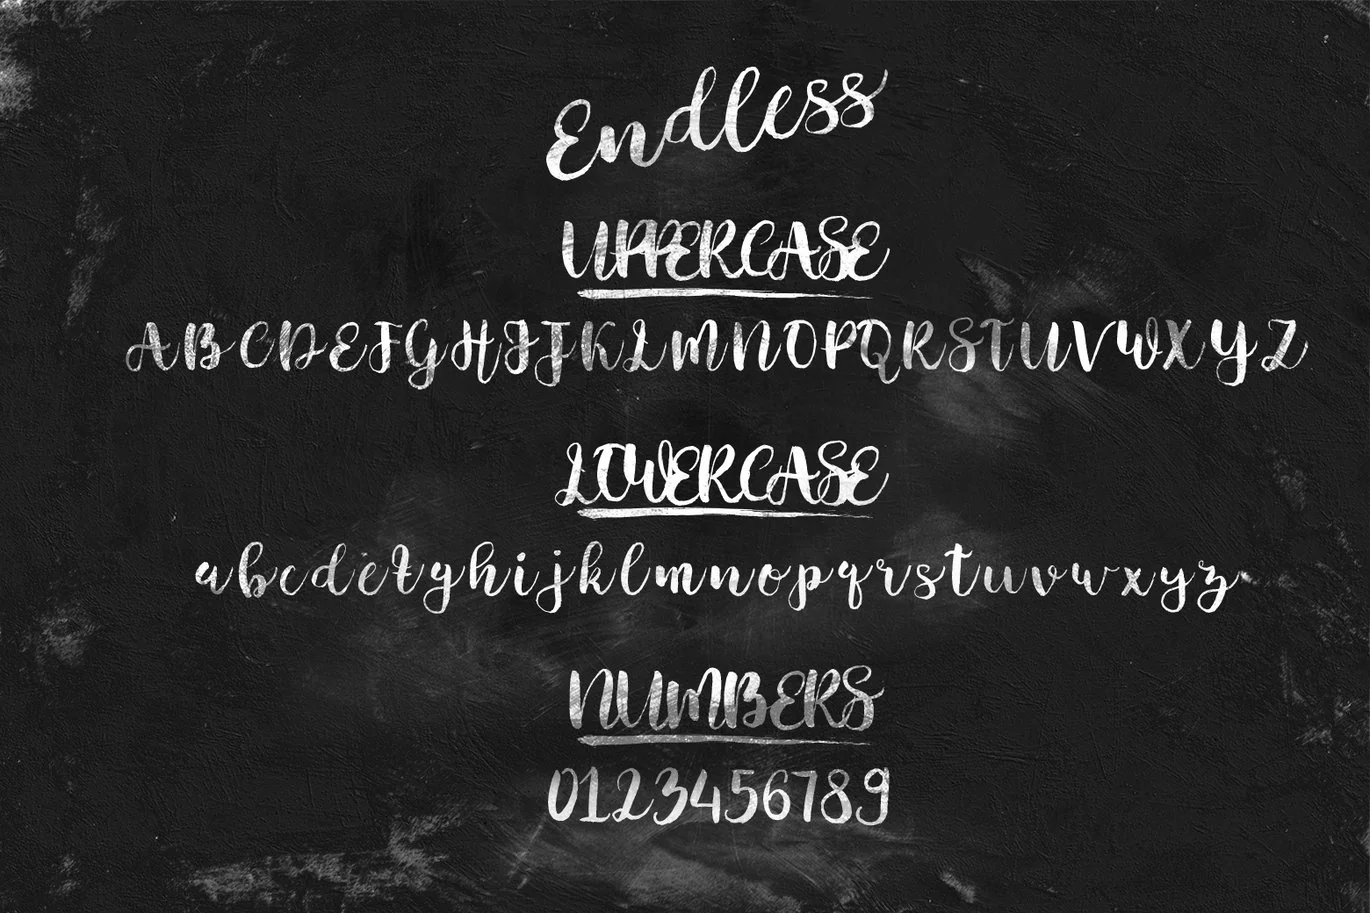 Endless
UPPERCASE
ABCDEFGHIJKLMNOPQRSTUVWXYZ
LOWERCASE
abcdefghijklmnopqrstuvwxyz
NUMBERS
0123456789